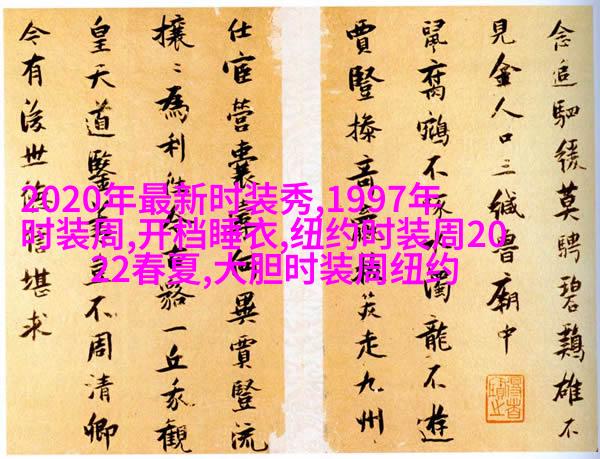 念追駟緩莫騁碧鷄雄不
見金人口三緘魯廟中
鼠腐不濁龍不遊
賈豎操奇走九州
仕宦營囊異賈豎流
攘〻為利一丘我觀
皇天道不周清卿
今有後世堪求
2020年最新时装秀,1997年
时装周,开裆睡衣,纽约时装周20
22春夏,大胆时装周纽约